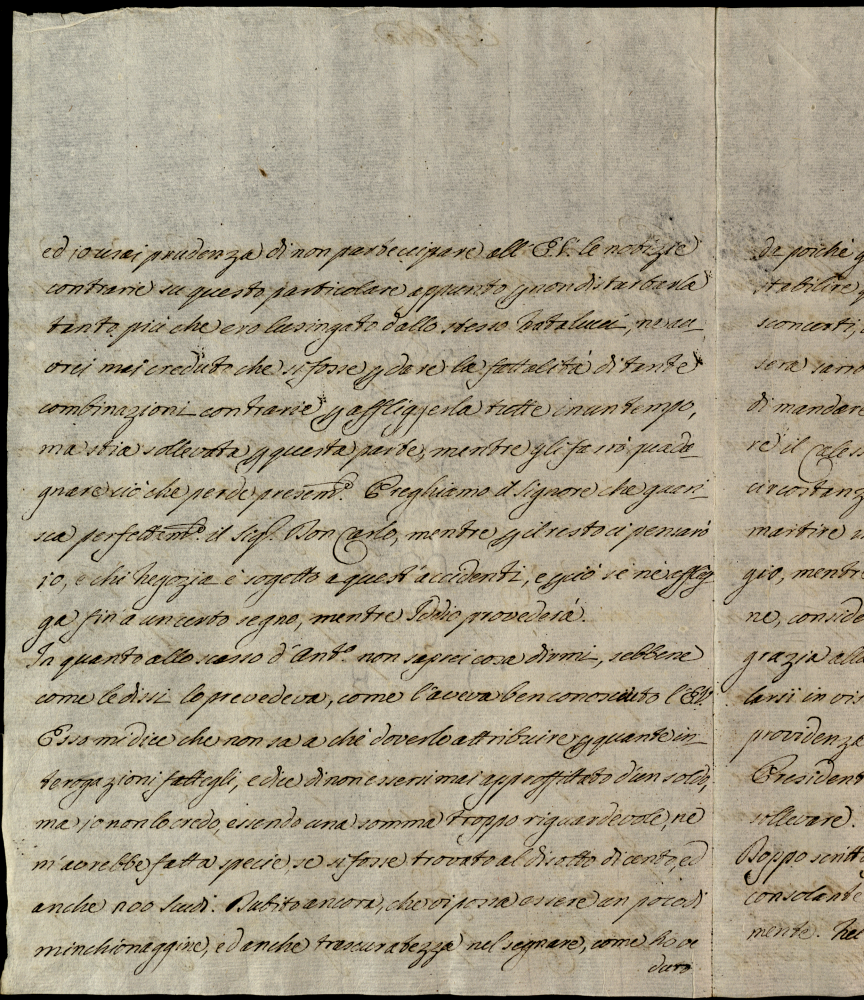 ed io usai prudenza di non parteccipare all' E.V. le notizie
contrarie su questo particolare appunto p non disturbarla
tanto più che ero lusingato dallo stesso Natalucci, ne au
rei mai creduto che si fosse p dare la fattalità di tante
combinazioni contrarie p affliggerla tutte in un tempo,
ma stia sollevata p questa parte, mentre gli farò guada
gnare ciò che perde presentem.e Preghiamo il Signore che guari
sca perfettam.e il Sig.r Don Carlo, mentre p il resto ci pensarò
io, e chi negozia è sogetto a quest'accidenti, e p ciò se ne afflig
ga fin a un certo segno, mentre Iddio provederà.
In quanto allo scasso d'Ant.o non saprei cosa dirmi, sebbene
come le dissi lo prevedeva, come l'aveva ben conosciuto l'E.V.
Esso mi dice che non sa a chi doverlo attribuire p quante in
terogazioni fattegli, e dice di non essersi mai approffittato d'un soldo,
ma io non lo credo, essendo una somma troppo riguardevole, ne
m'avrebbe fatta specie, se si fosse trovato al disotto di cento, ed
anche 200 Scudi. Dubito ancora, che vi possa essere un poco di
minchionaggine, ed anche trascuratezza nel segnare, come ho ve
duto
da poichè
stabilire
sconcerti,
sera sarò
di mandare
re il
circostanz
martire
gio, mentr
ne, conside
grazia all
larsi in vis
providenze
President
sollevare.
Doppo scritt
consolante
mente. Nel